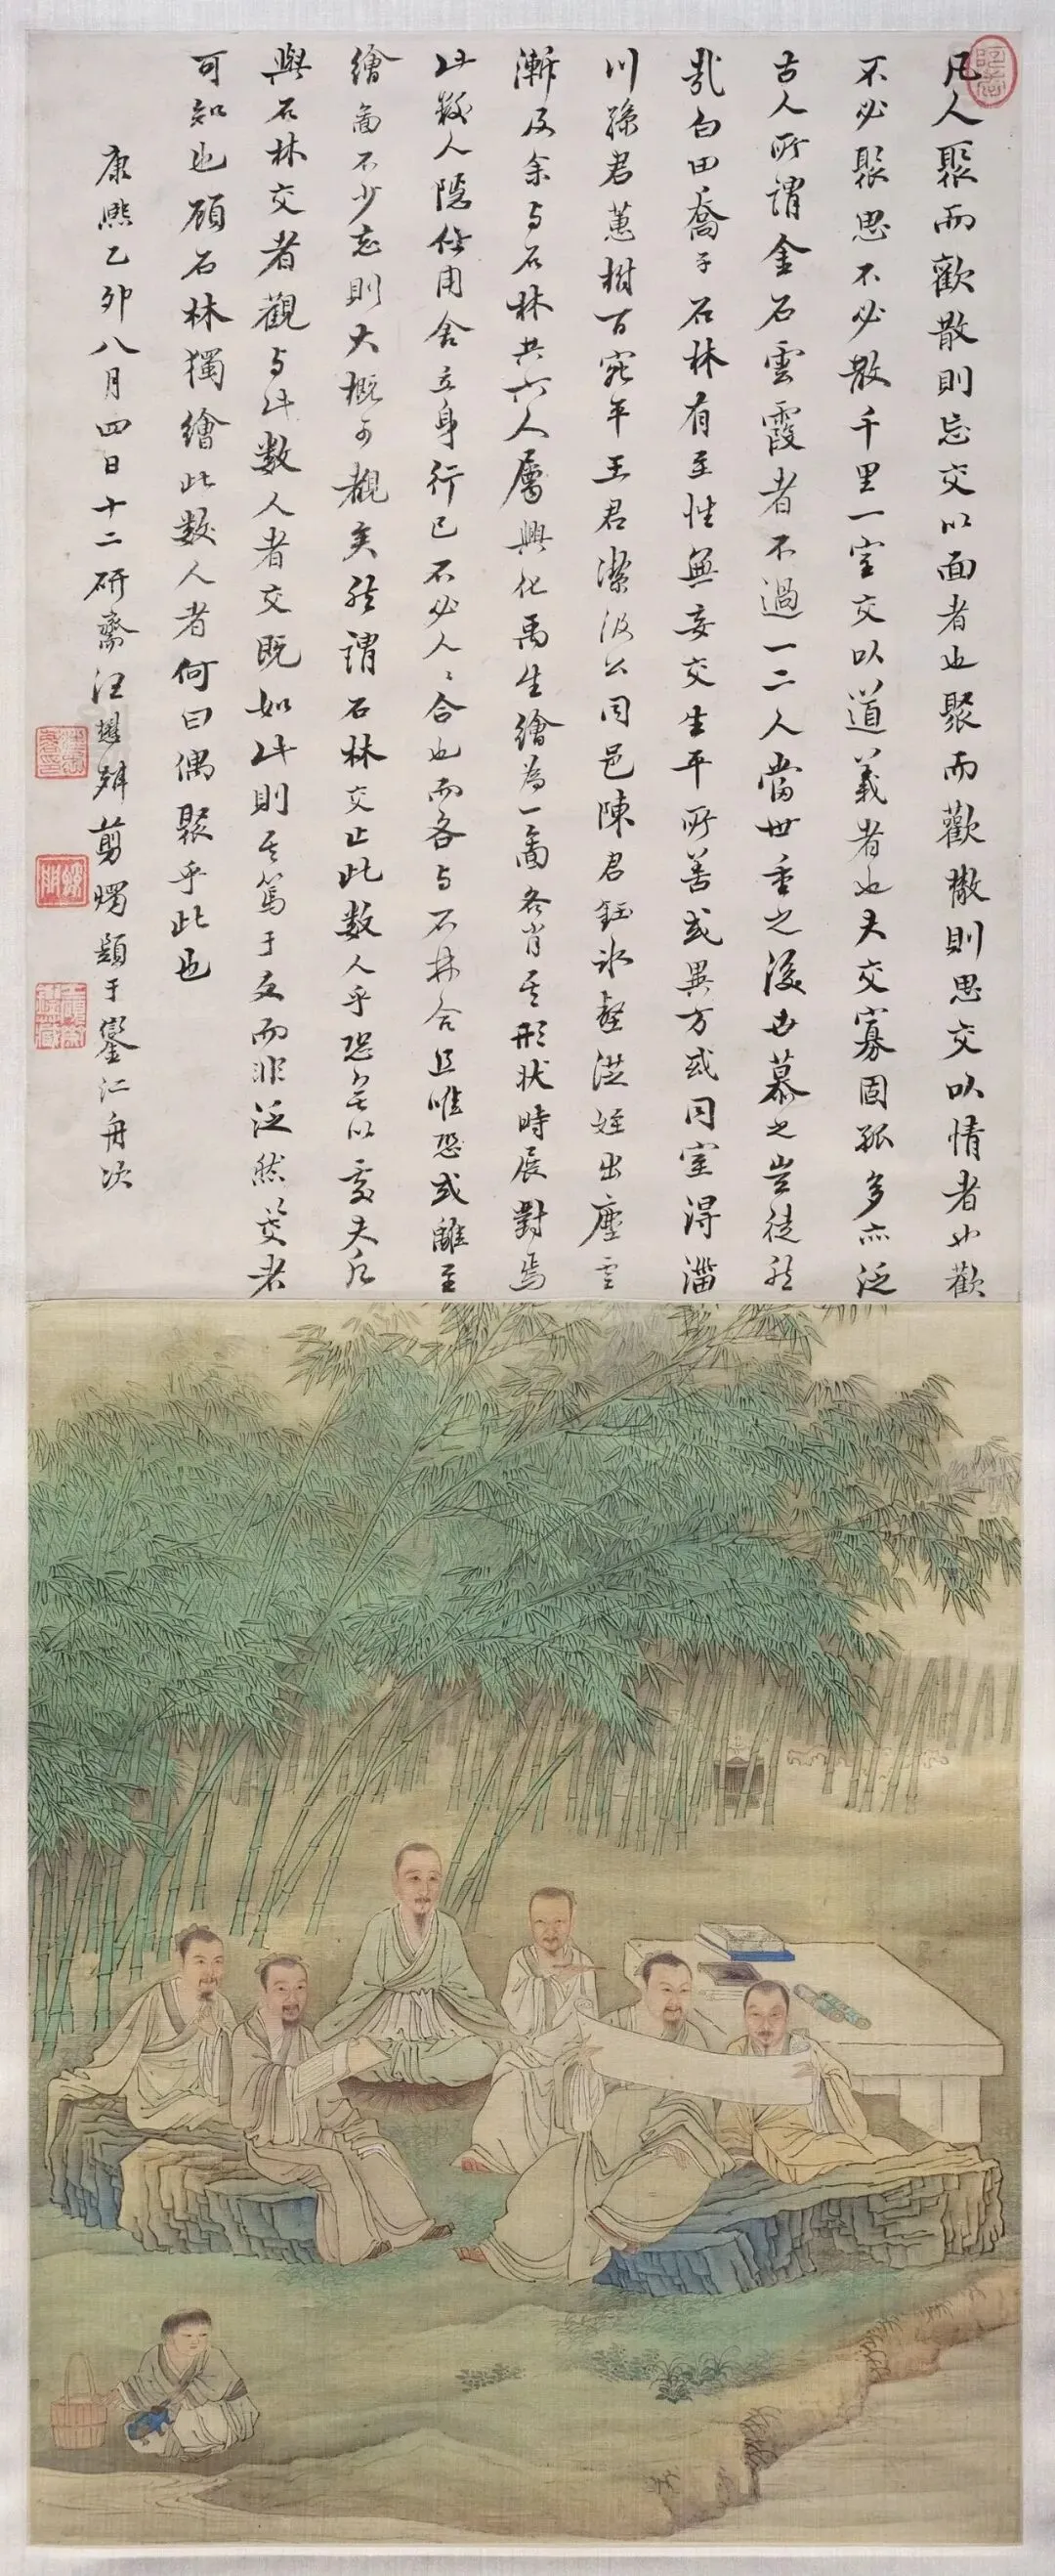 凡人聚而歡散則忘交以面者也聚而歡散則思交以情者也歡
不必聚思不必散千里一室交以道義者也夫交寡固孤多亦泛
古人所謂金石雲霞者不過一二人當世重之後世慕之豈徒然
哉白田喬子石林有至性無妄交生平所善或異方或同室得淄
川孫君蕙樹百宛平王君潔汲公同邑陳君鈺冰壑洪姪出塵雲
漸及余与石林共六人屬興化禹生繪為一圖各肖其形狀時展對焉
此數人隱仕用舍立身行己不必人〻合也而各与石林合且唯恐或離至
繪圖不少忘則大概可觀矣然謂石林交止此數人乎恐無以處夫凡
與石林交者觀与此數人者交既如此則其篤于友而非泛然交者
可知也顧石林獨繪此數人者何曰偶聚乎此也
康熙乙卯八月四日十二研齋汪懋麟剪燭題于鑾江舟次